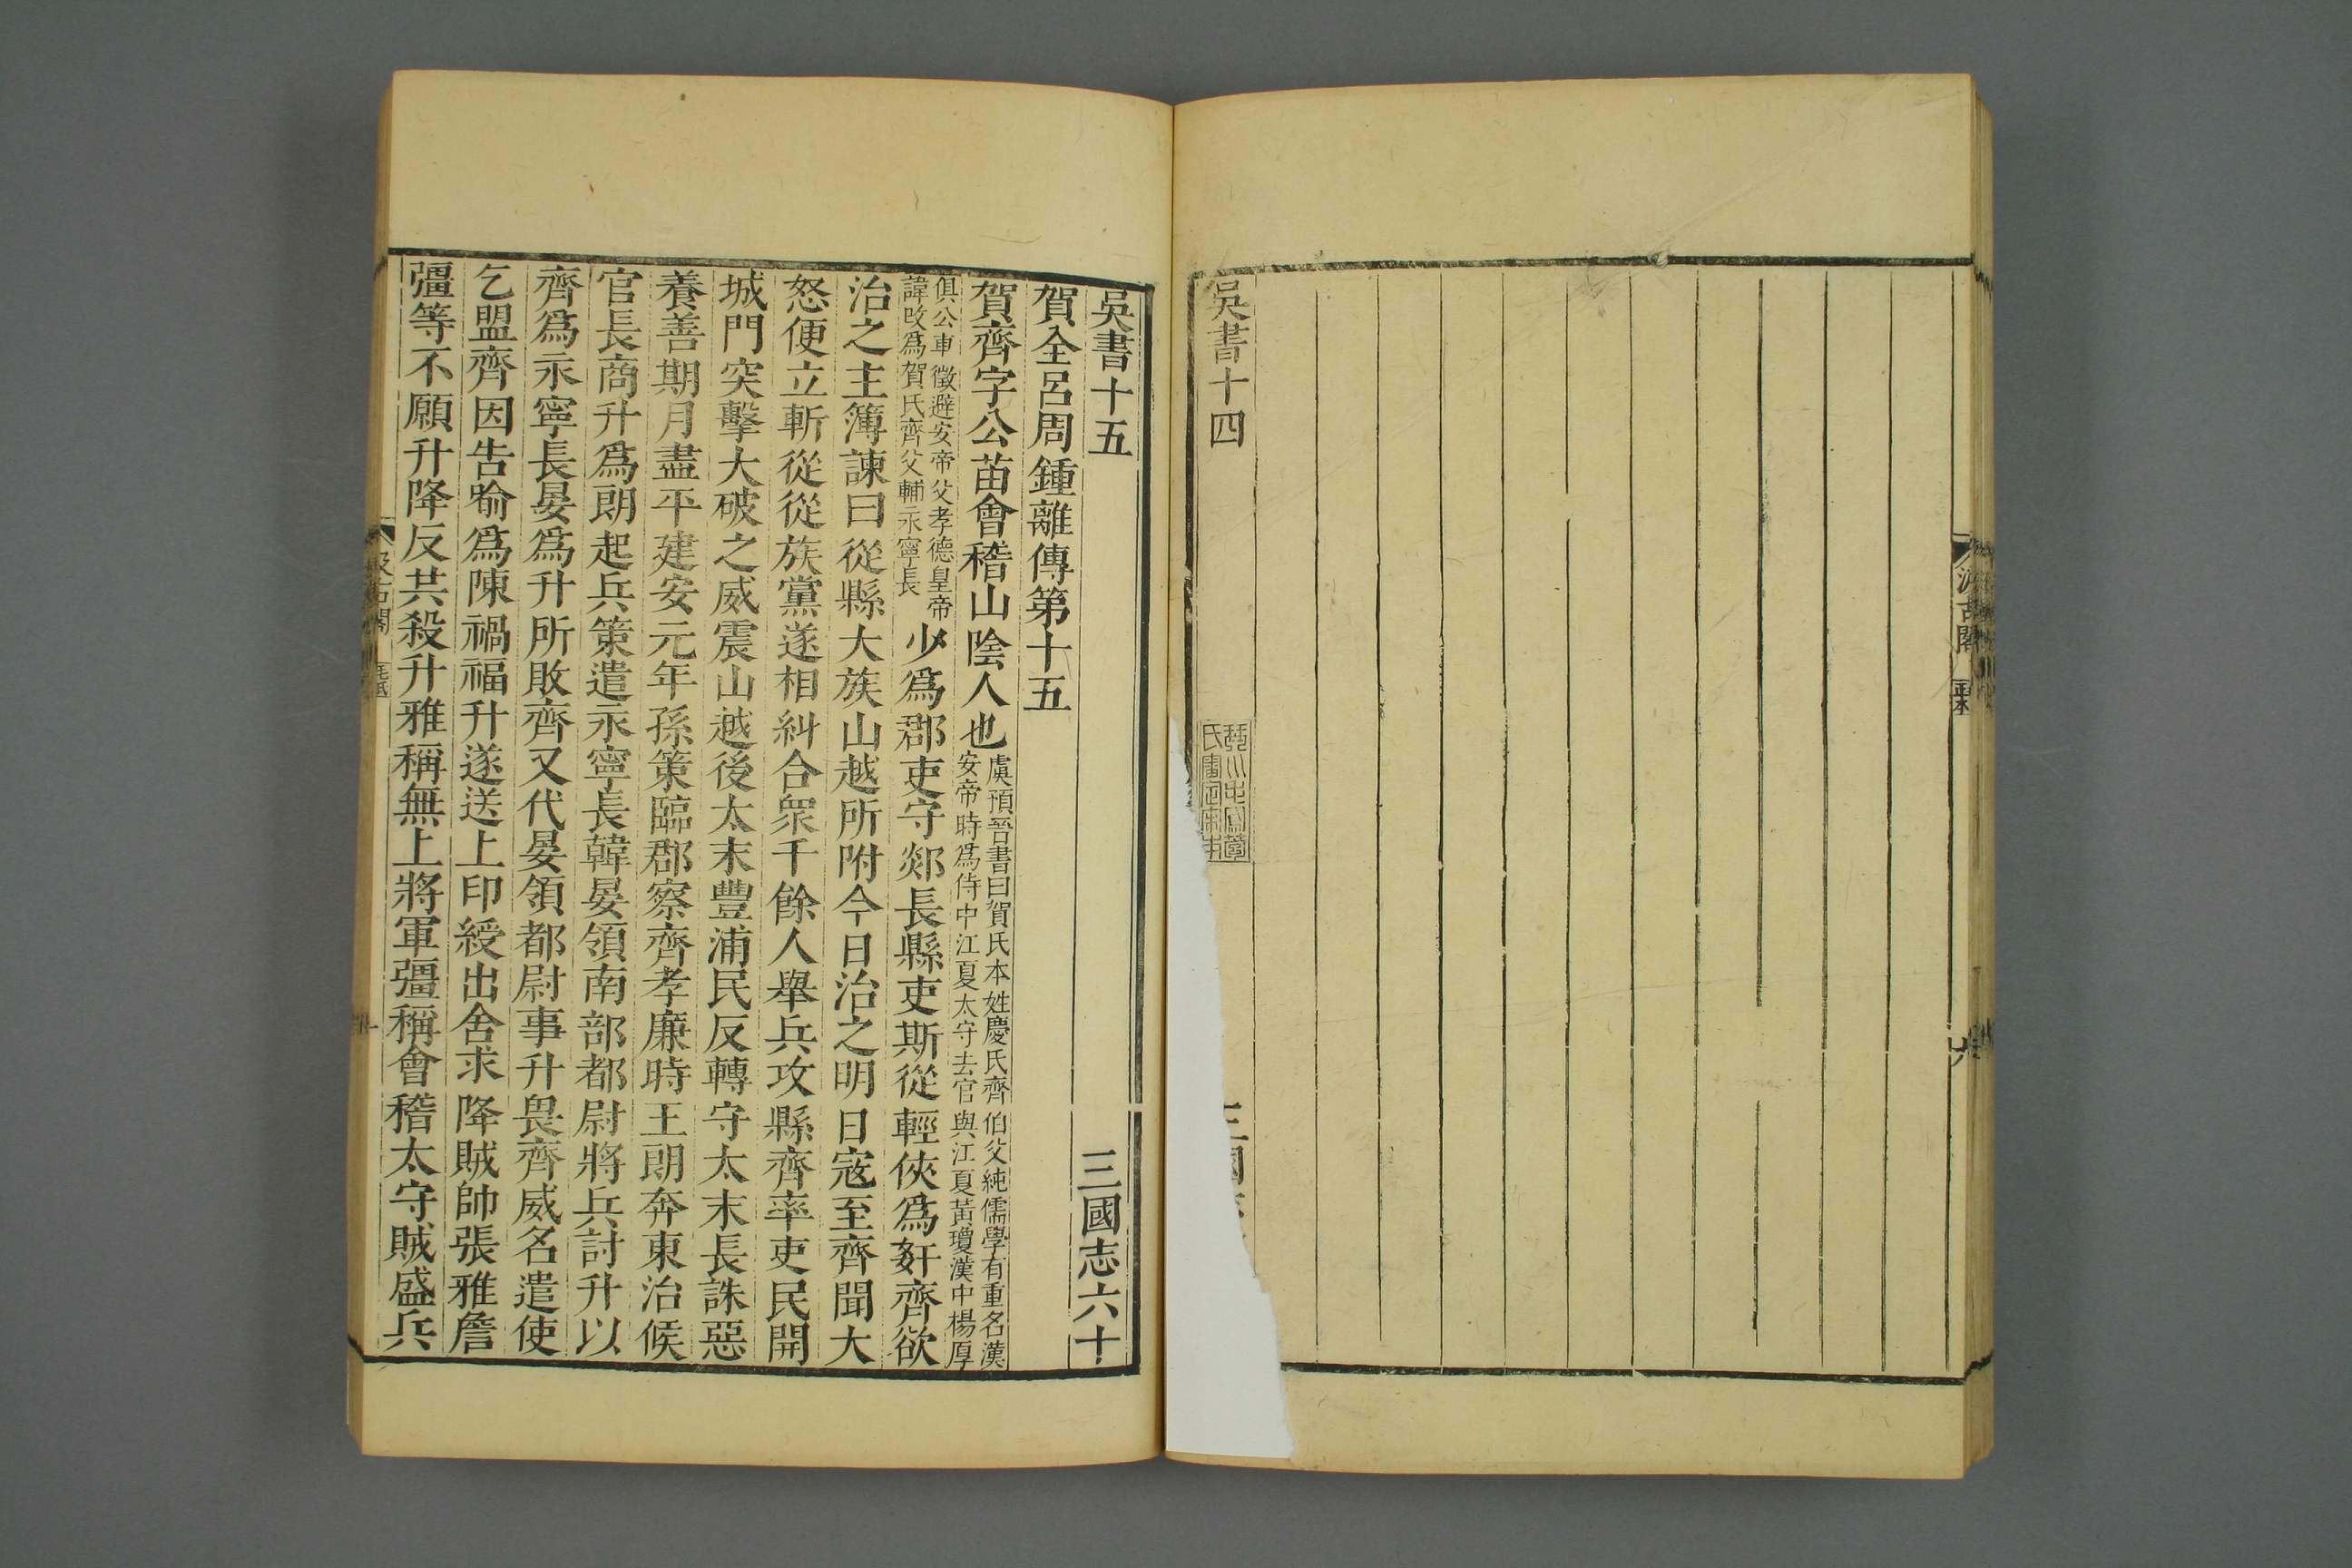 吳書十四
三國
汲古閣
六
吳書十五 三國志六十
賀全呂周鍾離傳第十五
賀齊字公苗會稽山陰人也
虞預晉書曰賀氏本姓慶氏齊伯父純儒學有重名漢
安帝時爲侍中江夏太守去官與江夏黃瓊漢中楊厚
俱公車徵避安帝父孝德皇帝
諱改爲賀氏齊父輔永寧長
少爲郡吏守剡長縣吏斯從輕俠爲奸齊欲
治之主簿諫曰從縣大族山越所附今日治之明日寇至齊聞大
怒便立斬從從族黨遂相糾合衆千餘人舉兵攻縣齊率吏民開
城門突擊大破之威震山越後太末豐浦民反轉守太末長誅惡
養善期月盡平建安元年孫策臨郡察齊孝廉時王朗奔東治候
官長商升爲朗起兵策遣永寧長韓晏領南部都尉將兵討升以
齊爲永寧長晏爲升所敗齊又代晏領都尉事升畏齊威名遣使
乞盟齊因告喻爲陳禍福升遂送上印綬出舍求降賊帥張雅詹
彊等不願升降反共殺升雅稱無上將軍彊稱會稽太守賊盛兵